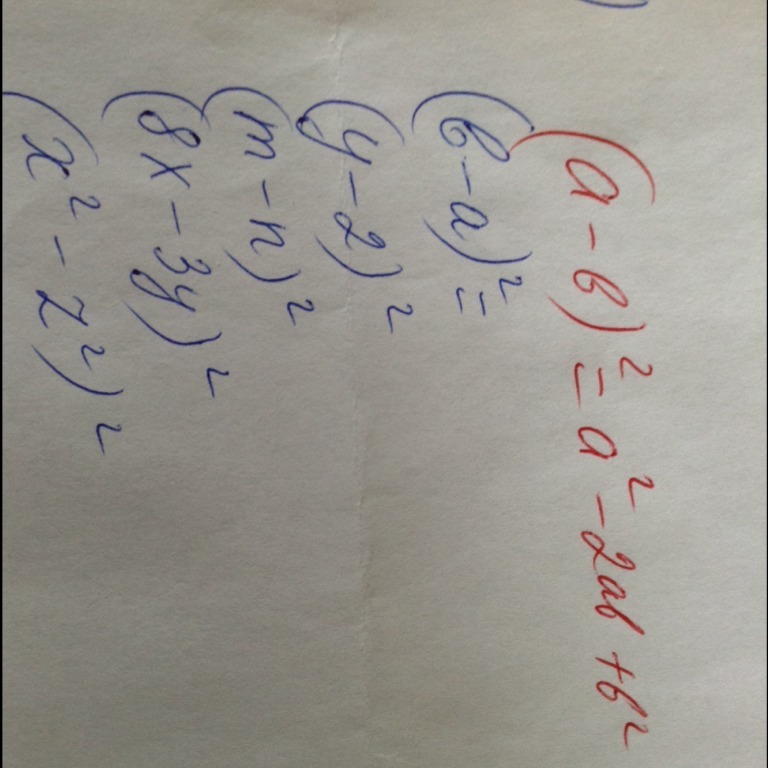 (a-b)² = a² - 2ab + b²
(b-a)² =
(y-2)²
(m-n)²
(8x-3y)²
(x²-z²)²